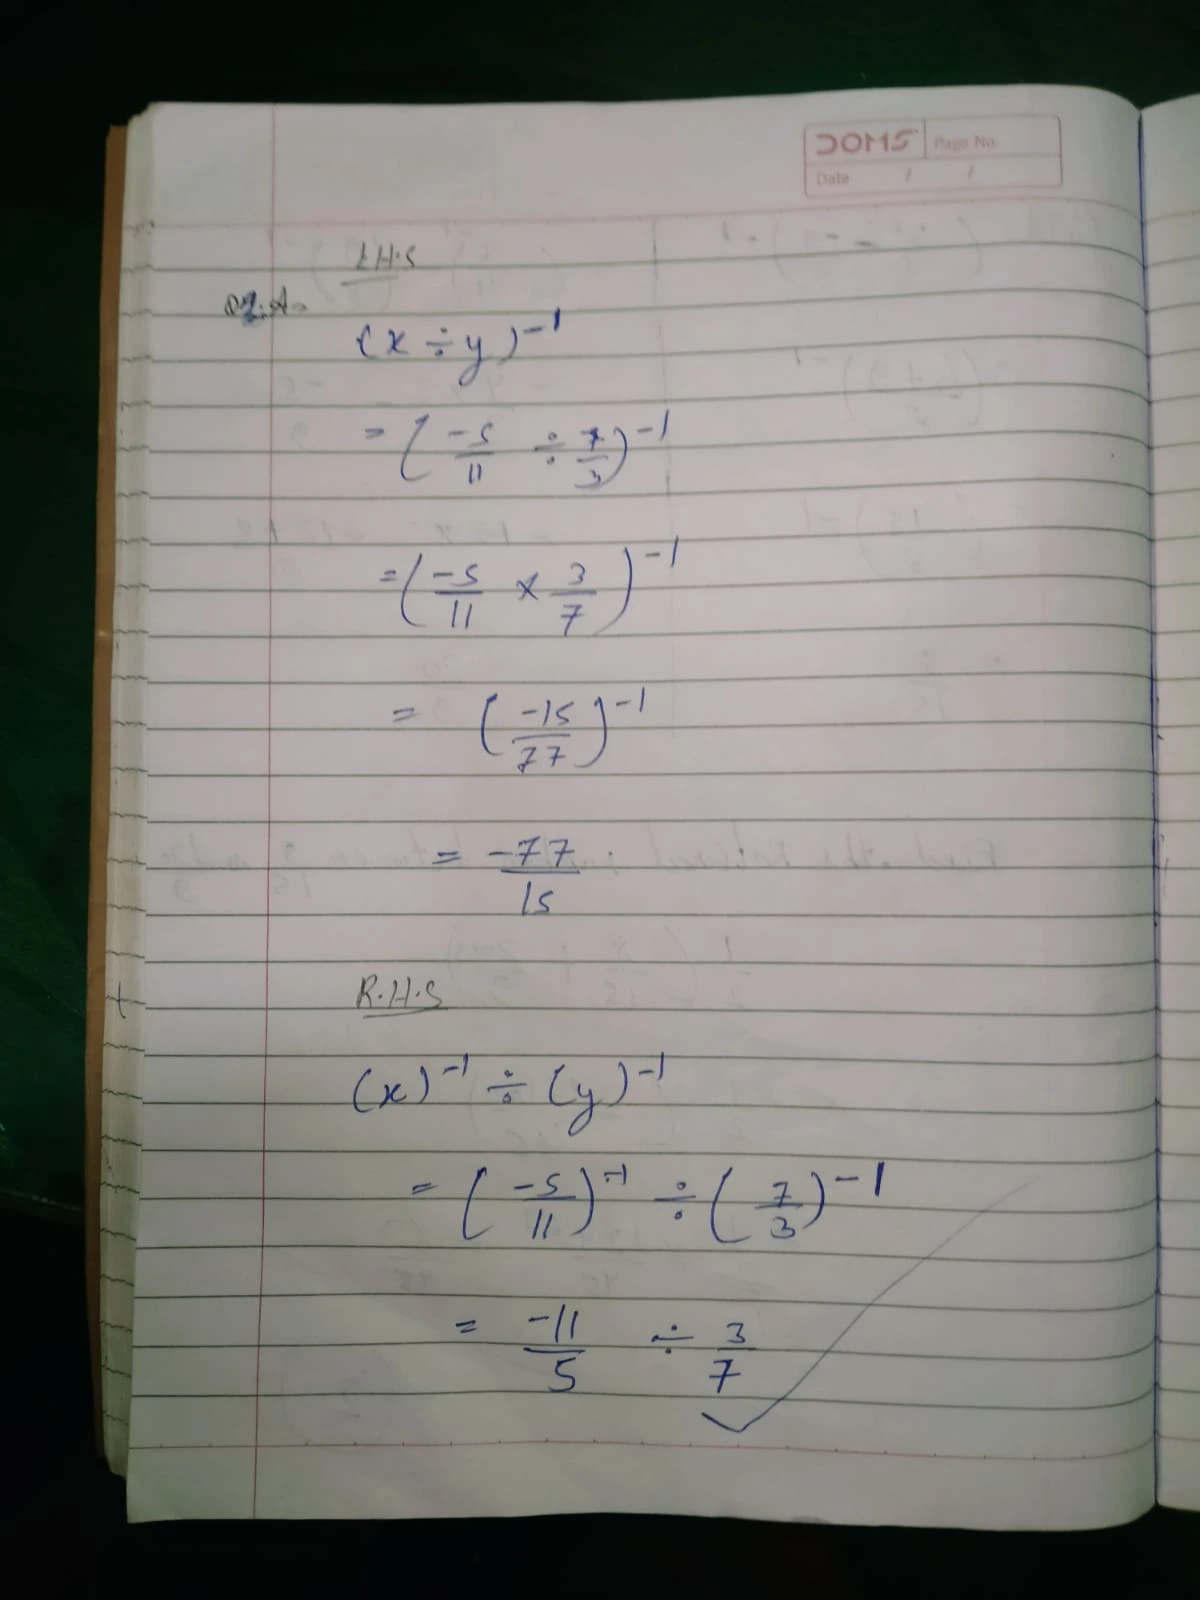 DOMS Page No.
Date / /
L.H.S
Q2.A=
(x ÷ y)⁻¹
= (-5/11 ÷ 7/3)⁻¹
= (-5/11 × 3/7)⁻¹
= (-15/77)⁻¹
= -77/15
R.H.S
(x)⁻¹ ÷ (y)⁻¹
= (-5/11)⁻¹ ÷ (7/3)⁻¹
= -11/5 ÷ 3/7